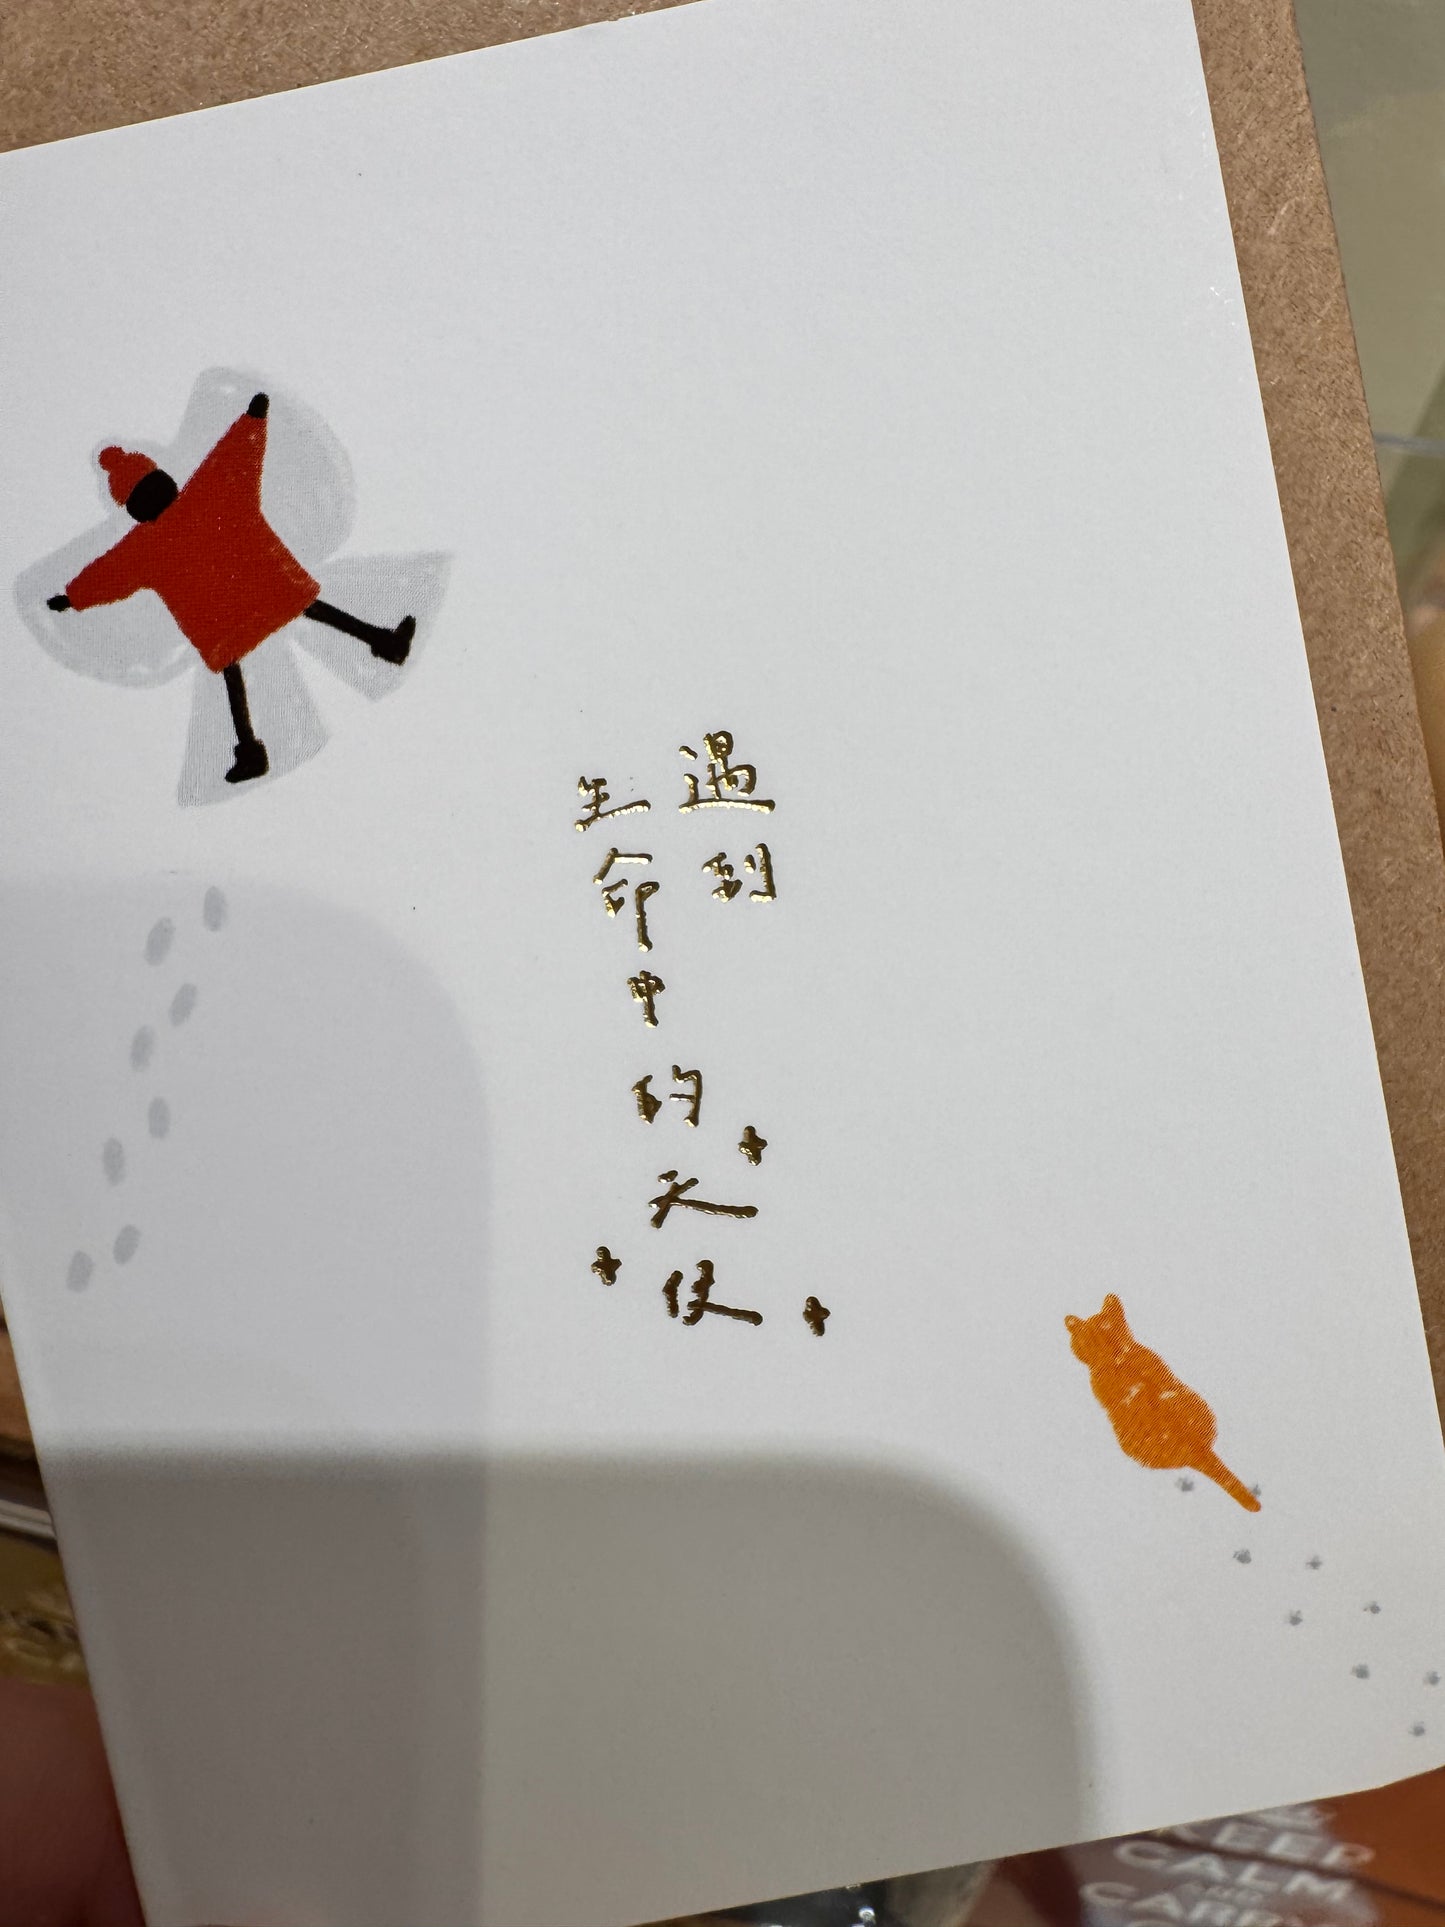 遇到
生命中的天使
KEEP
CALM
AND
CARRY